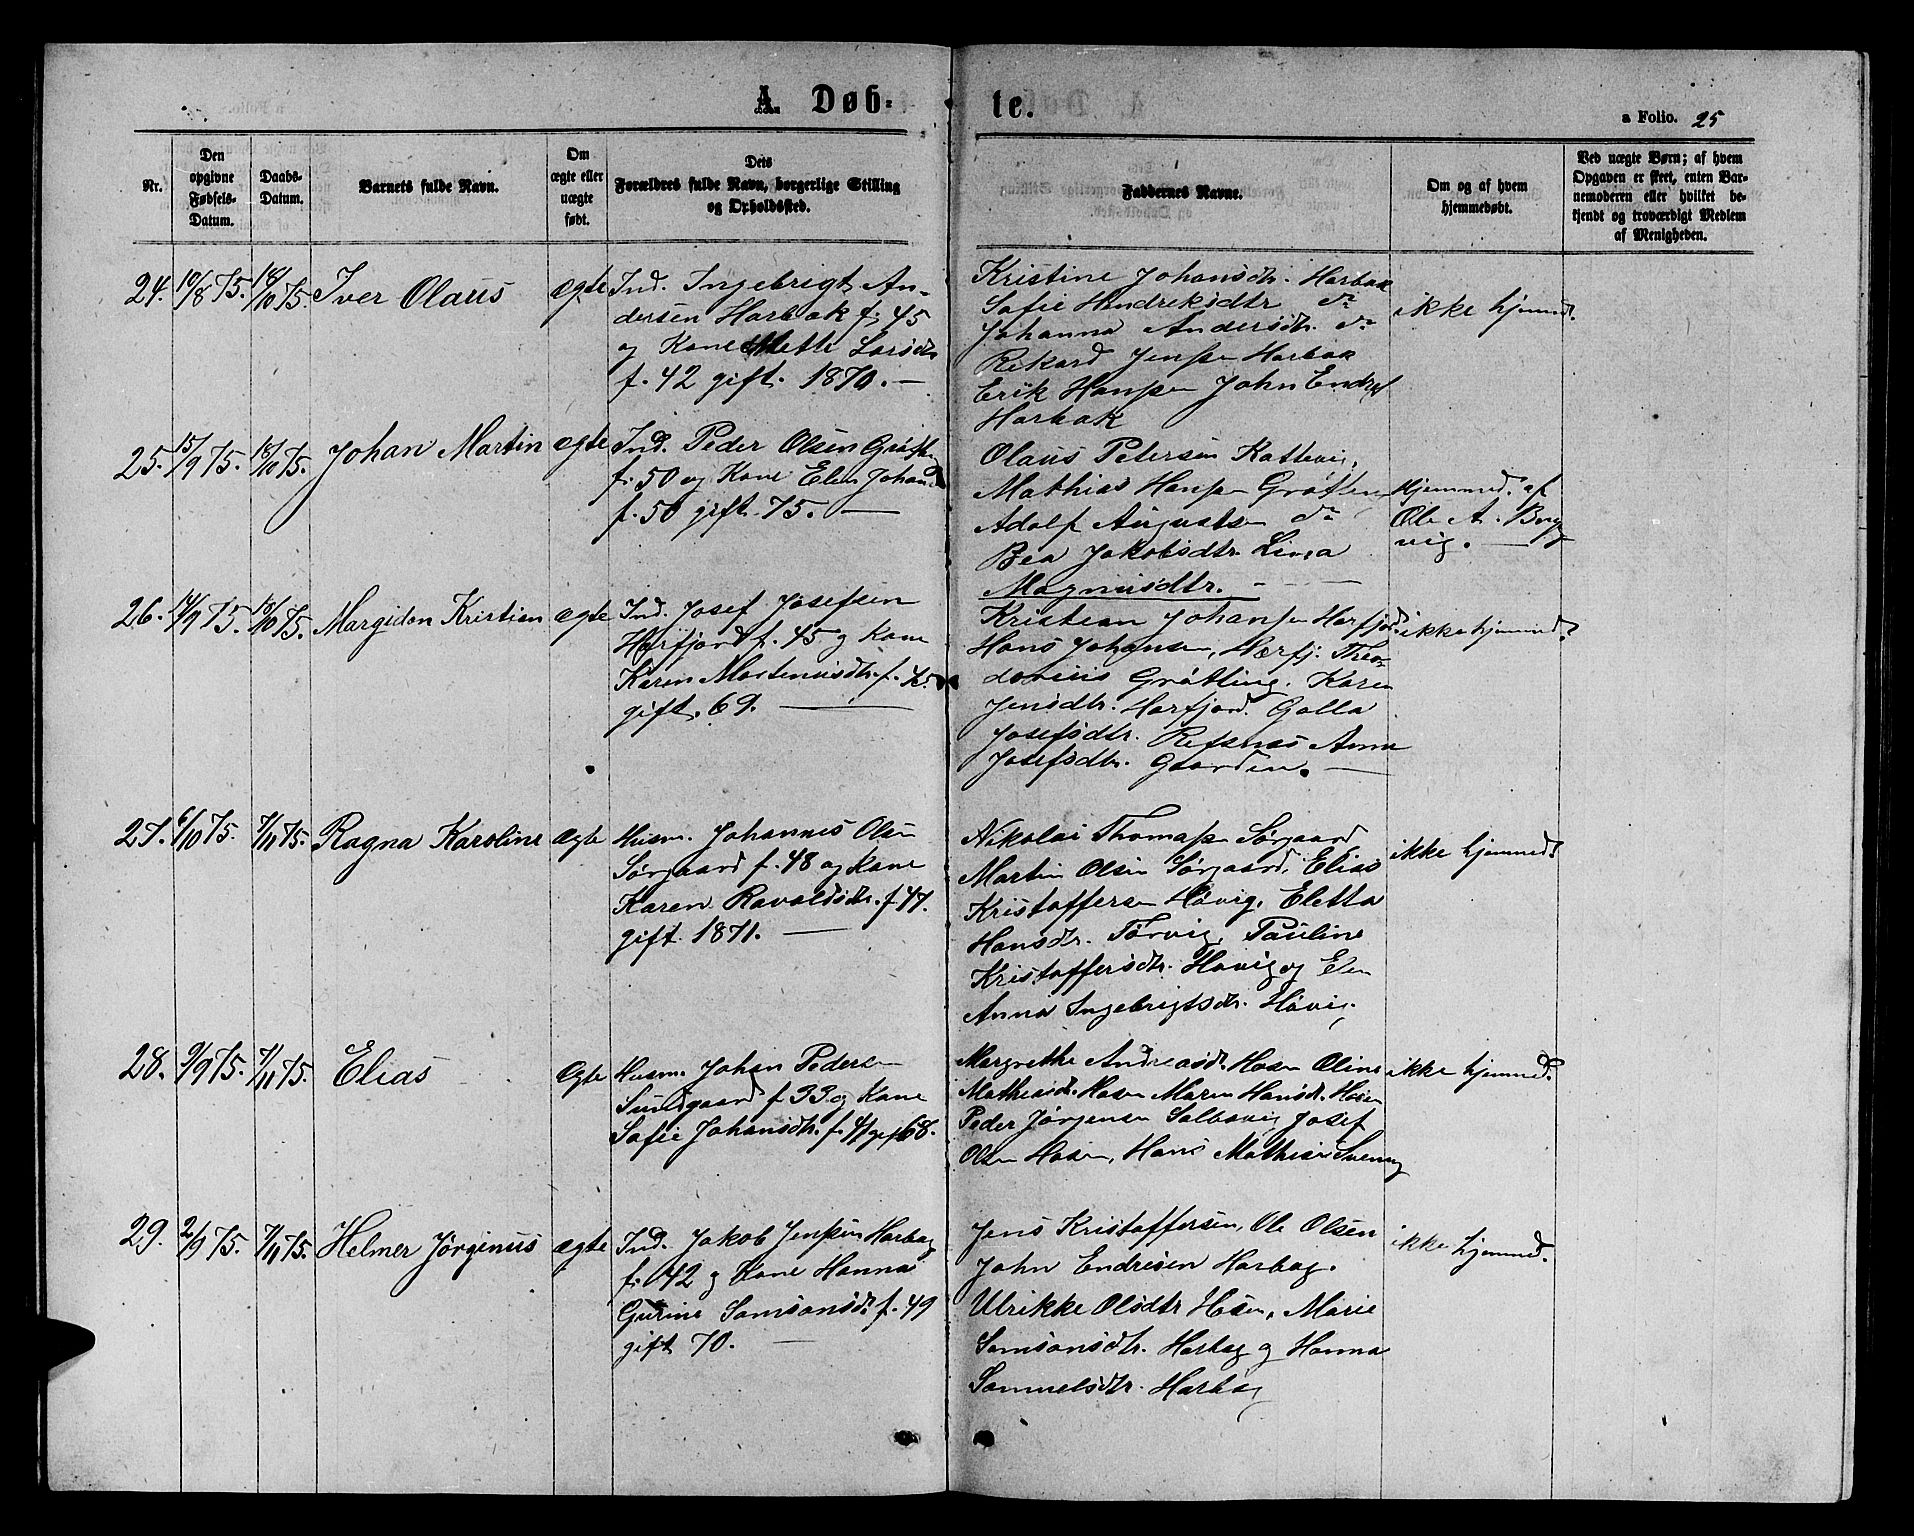 A. Døbte.
a Folio. 25
Nr.
Den opgivne Fødsels-Datum.
Daabs-Datum.
Barnets fulde Navn.
Om ægte eller uægte født.
Dets Forældres fulde Navn, borgerlige Stilling og Opholdssted.
Faddernes Navne.
Om og af hvem hjemmedøbt.
Ved uægte Børn; af hvem Opgaven er skeet, enten Barnemoderen eller hvilket bekjendt og troværdigt Medlem af Menigheden.
24. 10/8 75. 18/10 75. Iver Olaus ægte
Ind. Ingebrigt An-
dersen Harbak f. 45
og Kone Mette Larsdtr
f. 42 gift. 1870. —
Kristine Johansdtr. Harbak
Sofie Hindreksdtr do
Johanna Andersdtr. do
Rikard Jenssen Harbak
Erik Hanssen John Endres
Harbak
ikke hjemmed.
25. 15/9 75. 18/10 75. Johan Martin ægte
Ind. Peder Olsen Grøtt
f. 50 og Kone Elen Johans
f. 50 gift. 75. —
Olaus Petersen Kattevig,
Mathias Hansen Grøtten
Adolf Augustsen do
Bea Jakobsdtr Lina
Magnusdtr.
Hjemmed. af
Ole A. Berg
vig. —
26. 14/9 75. 18/10 75. Margidon Kristian ægte
Ind. Josef Josefsen
Harfjord f. 45 og Kone
Karen Mortenusdtr. f. 45
gift. 69. —
Kristian Johansen Harfjord
Hans Johansen, Harfj. Theo-
dorius Grøtting. Karen
Jensdtr. Harfjord. Golla
Josefsdtr. Refsnes Anna
Josefsdtr. Gaarden. —
ikke hjemmed.
27. 6/10 75. 7/11 75. Ragna Karoline ægte
Husm. Johannes Olsen
Sørgaard f. 48 og Kone
Karen Ravaldsdtr. f 47.
gift. 1871. —
Nikolai Thomassen Sørgaard
Martin Olsen Sørgaard, Elias
Kristoffersen Høvig, Eletta
Hansdtr. Tørvig, Pauline
Kristoffersdtr. Høvig og Elen
Anna Ingebrigtsdtr. Høvig.
ikke hjemmed.
28. 9/9 75. 7/11 75. Elias ægte
Husm. Johan Pedersen
Sundgaard f 33 og Kone
Sofie Johansdtr. f. 41 gift 68.
Margrethe Andreasdtr. Hosen Oline
Mathiasdtr. Hosen Maren Hansdtr. Hosen
Peder Jørgensen Josef
Olsen Hosen, Hans Mathisen
ikke hjemmed.
29. 2/9 75. 7/11 75. Helmer Jørginus ægte
Ind. Jakob Jenssen Harbag
f. 42 og Kone Hanna
Gurine Samsonsdtr. f. 49
gift 70. —
Jens Kristoffersen, Ole Olsen
John Endresen Harbag.
Ulrikke Olsdtr Hosen, Marie
Samsonsdtr. Harbag og Hanna
Samuelsdtr. Harbag
ikke hjemmed.